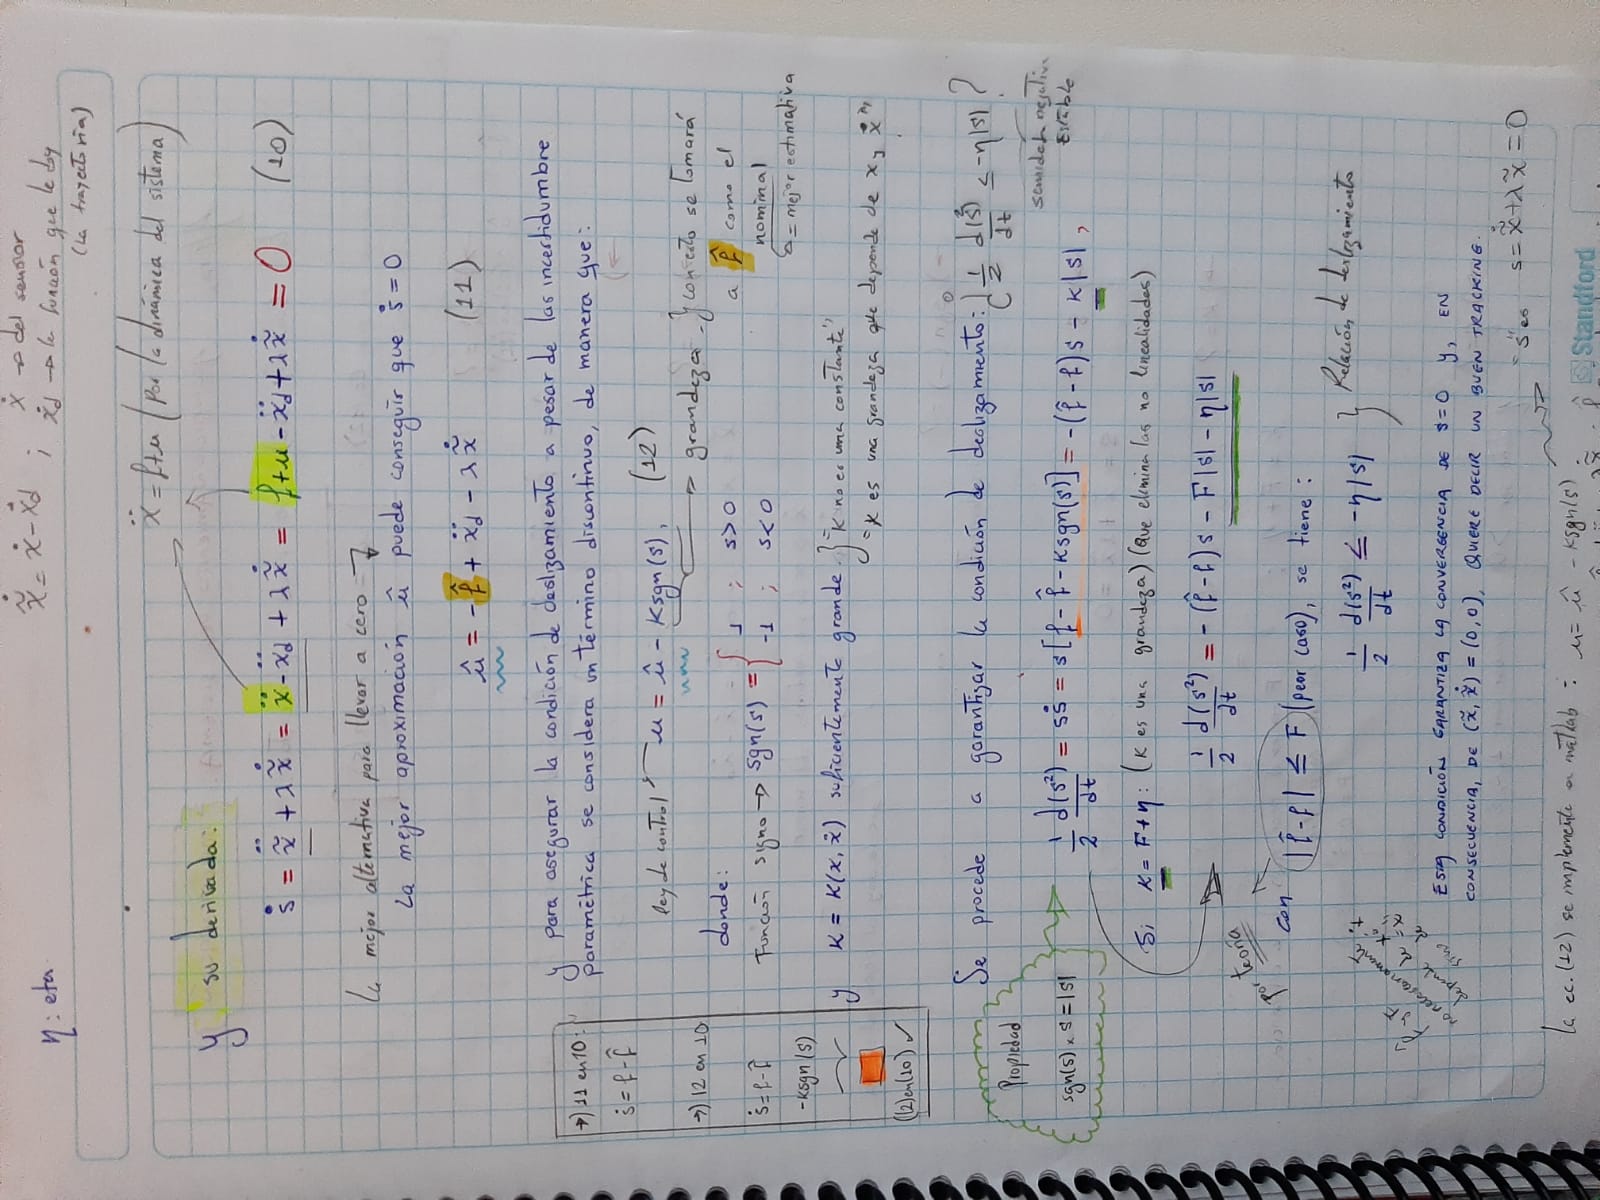 η: eta
x̃̇ = ẋ - ẋd ; ẋ → del sensor
ẋd → la función que le doy
(la trayectoria)
ẍ = f+u (por la dinámica del sistema)
Y su derivada:
ṡ = x̃̈ + λx̃̇ = ẍ - ẍd + λx̃̇ = f+u - ẍd + λx̃̇ = 0 (10)
La mejor alternativa para llevar a cero
La mejor aproximación û puede conseguir que ṡ=0
û = -f̂ + ẍd - λx̃̇ (11)
Y para asegurar la condición de deslizamiento a pesar de las incertidumbre
paramétrica se considera un término discontinuo, de manera que:
ley de control u = û - Ksgn(s), (12)
grandeza - y con esto se tomará
a f̂ como el
nominal
= mejor estimativa
donde:
Función signo → sgn(s) = { 1 ; s>0
-1 ; s<0
y K = K(x, ẋ) suficientemente grande. } = "K no es una constante"
= K es una grandeza que depende de x y ẋ
→) 11 en 10:
ṡ = f - f̂
→) 12 en 10
ṡ = f - f̂
-Ksgn(s)
(12)en(10) ✓
Se procede a garantizar la condición de deslizamiento: ¿ 1/2 d(s²)/dt ≤ -η|s| ?
semidef. negativa
estable
Propiedad
sgn(s) × s = |s|
1/2 d(s²)/dt = sṡ = s[f - f̂ - Ksgn(s)] = -(f̂ - f)s - K|s|,
Si K = F+η: (K es una grandeza) (que elimina las no linealidades)
1/2 d(s²)/dt = -(f̂ - f)s - F|s| - η|s|
Por teoría
con |f̂ - f| ≤ F (peor caso), se tiene:
1/2 d(s²)/dt ≤ -η|s| } Relación de deslizamiento
ESTA CONDICIÓN GARANTIZA LA CONVERGENCIA DE S=0 Y, EN
CONSECUENCIA, DE (x̃, x̃̇) = (0,0), QUIERE DECIR UN BUEN TRACKING.
"s" es s = x̃̇ + λx̃ = 0
la ec. (12) se implementa a matlab : u = û - Ksgn(s)
Standford